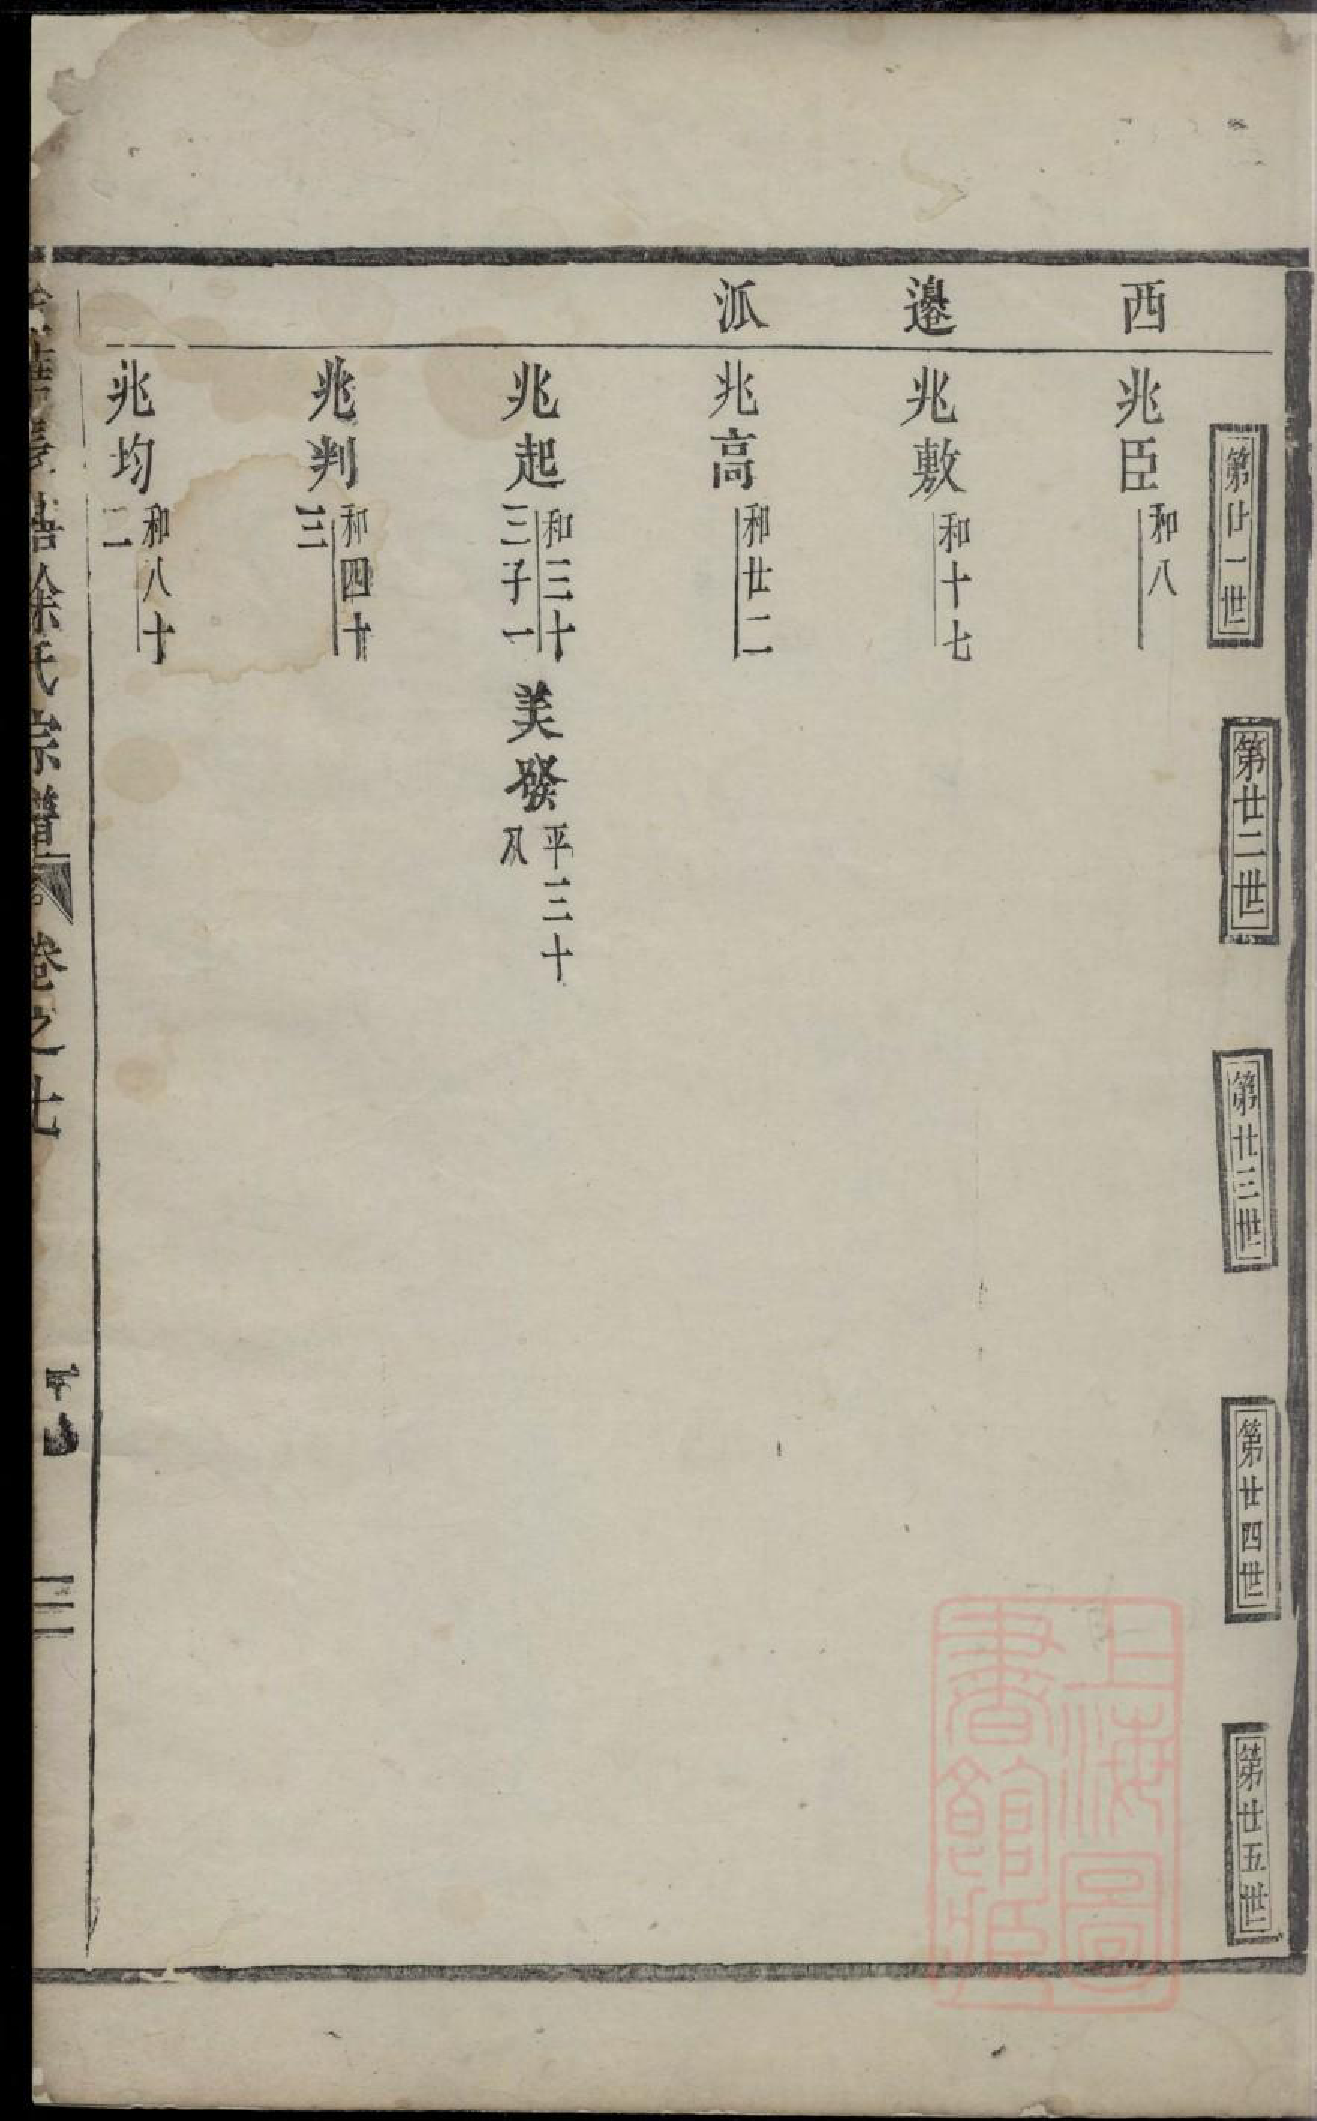 第廿一世
第廿二世
第廿三世
第廿四世
第廿五世
西
邊
派
兆臣
和八
兆敷
和十七
兆高
和廿二
兆起
和三十
三子一
美發
平三十
八
兆判
和四十
三
兆均
和八十
二
徐氏宗譜
卷之七
三
上海圖
書館藏